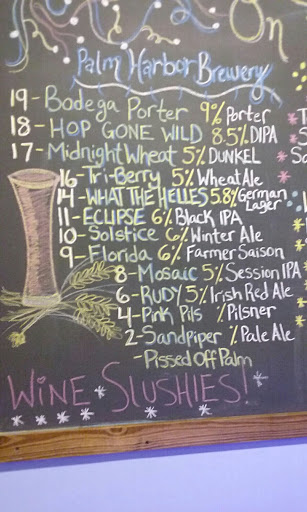 On
Palm Harbor Brewery
19-Bodega Porter 9% Porter
18-HOP GONE WILD 8.5% DIPA
17-Midnight Wheat 5% DUNKEL
16-Tri-Berry 5% Wheat Ale
14-WHAT THE HELLES 5.8% German Lager
11-ECLIPSE 6% Black IPA
10-Solstice 6% Winter Ale
9-Florida 6% Farmer Saison
8-Mosaic 5% Session IPA
6-RUDY 5% Irish Red Ale
4-Pink Pils % Pilsner
2-Sandpiper % Pale Ale
-Pissed Off Palm
WINE SLUSHIES!